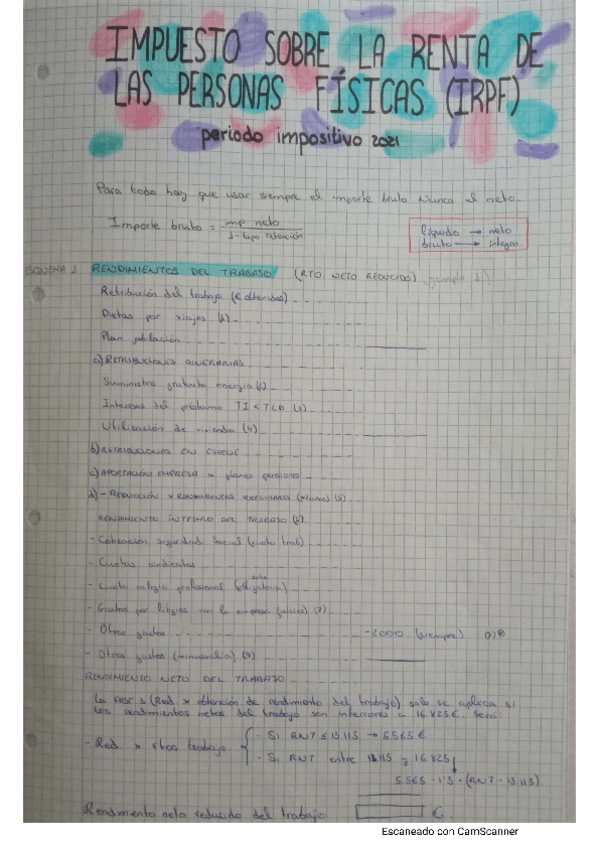 IMPUESTO SOBRE LA RENTA DE
LAS PERSONAS FÍSICAS (IRPF)
periodo impositivo 2021
Para todo hay que usar siempre el importe bruto. Nunca el neto.
Importe bruto = imp neto / 1 - tipo retención
líquido → neto
bruto → íntegro
ESQUEMA 1 RENDIMIENTOS DEL TRABAJO (RTO NETO REDUCIDO) (ejemplo 1)
Retribución del trabajo (€ obtenidos)
Dietas por viajes (1)
Plan jubilación
a) RETRIBUCIONES DINERARIAS
Suministro gratuito energía (2)
Intereses del préstamo TI < TLD (3)
Utilización de vivienda (4)
b) RETRIBUCIONES EN ESPECIE
c) APORTACIÓN EMPRESA a planes pensiones
d) - REDUCCIÓN x RENDIMIENTOS (5)
RENDIMIENTO ÍNTEGRO DEL TRABAJO (6)
- Cotización seguridad social (cuota trab)
- Cuotas sindicatos
- Cuota colegio profesional (obligatoria)
- Gastos por litigios con la empresa (juicios) (7)
- Otros gastos -2000 (siempre)
- Otros gastos (minusvalía) (9)
RENDIMIENTO NETO DEL TRABAJO
La FASE 3 (Red x obtención de rendimiento del trabajo) solo se aplica si
los rendimientos netos del trabajo son inferiores a 16825€. Será:
- Red x rtos trabajo
- Si RNT ≤ 13115 → 5565€
- Si RNT entre 13115 y 16825
5565 - 1'5 · (RNT - 13115)
Rendimiento neto reducido del trabajo €
Escaneado con CamScanner